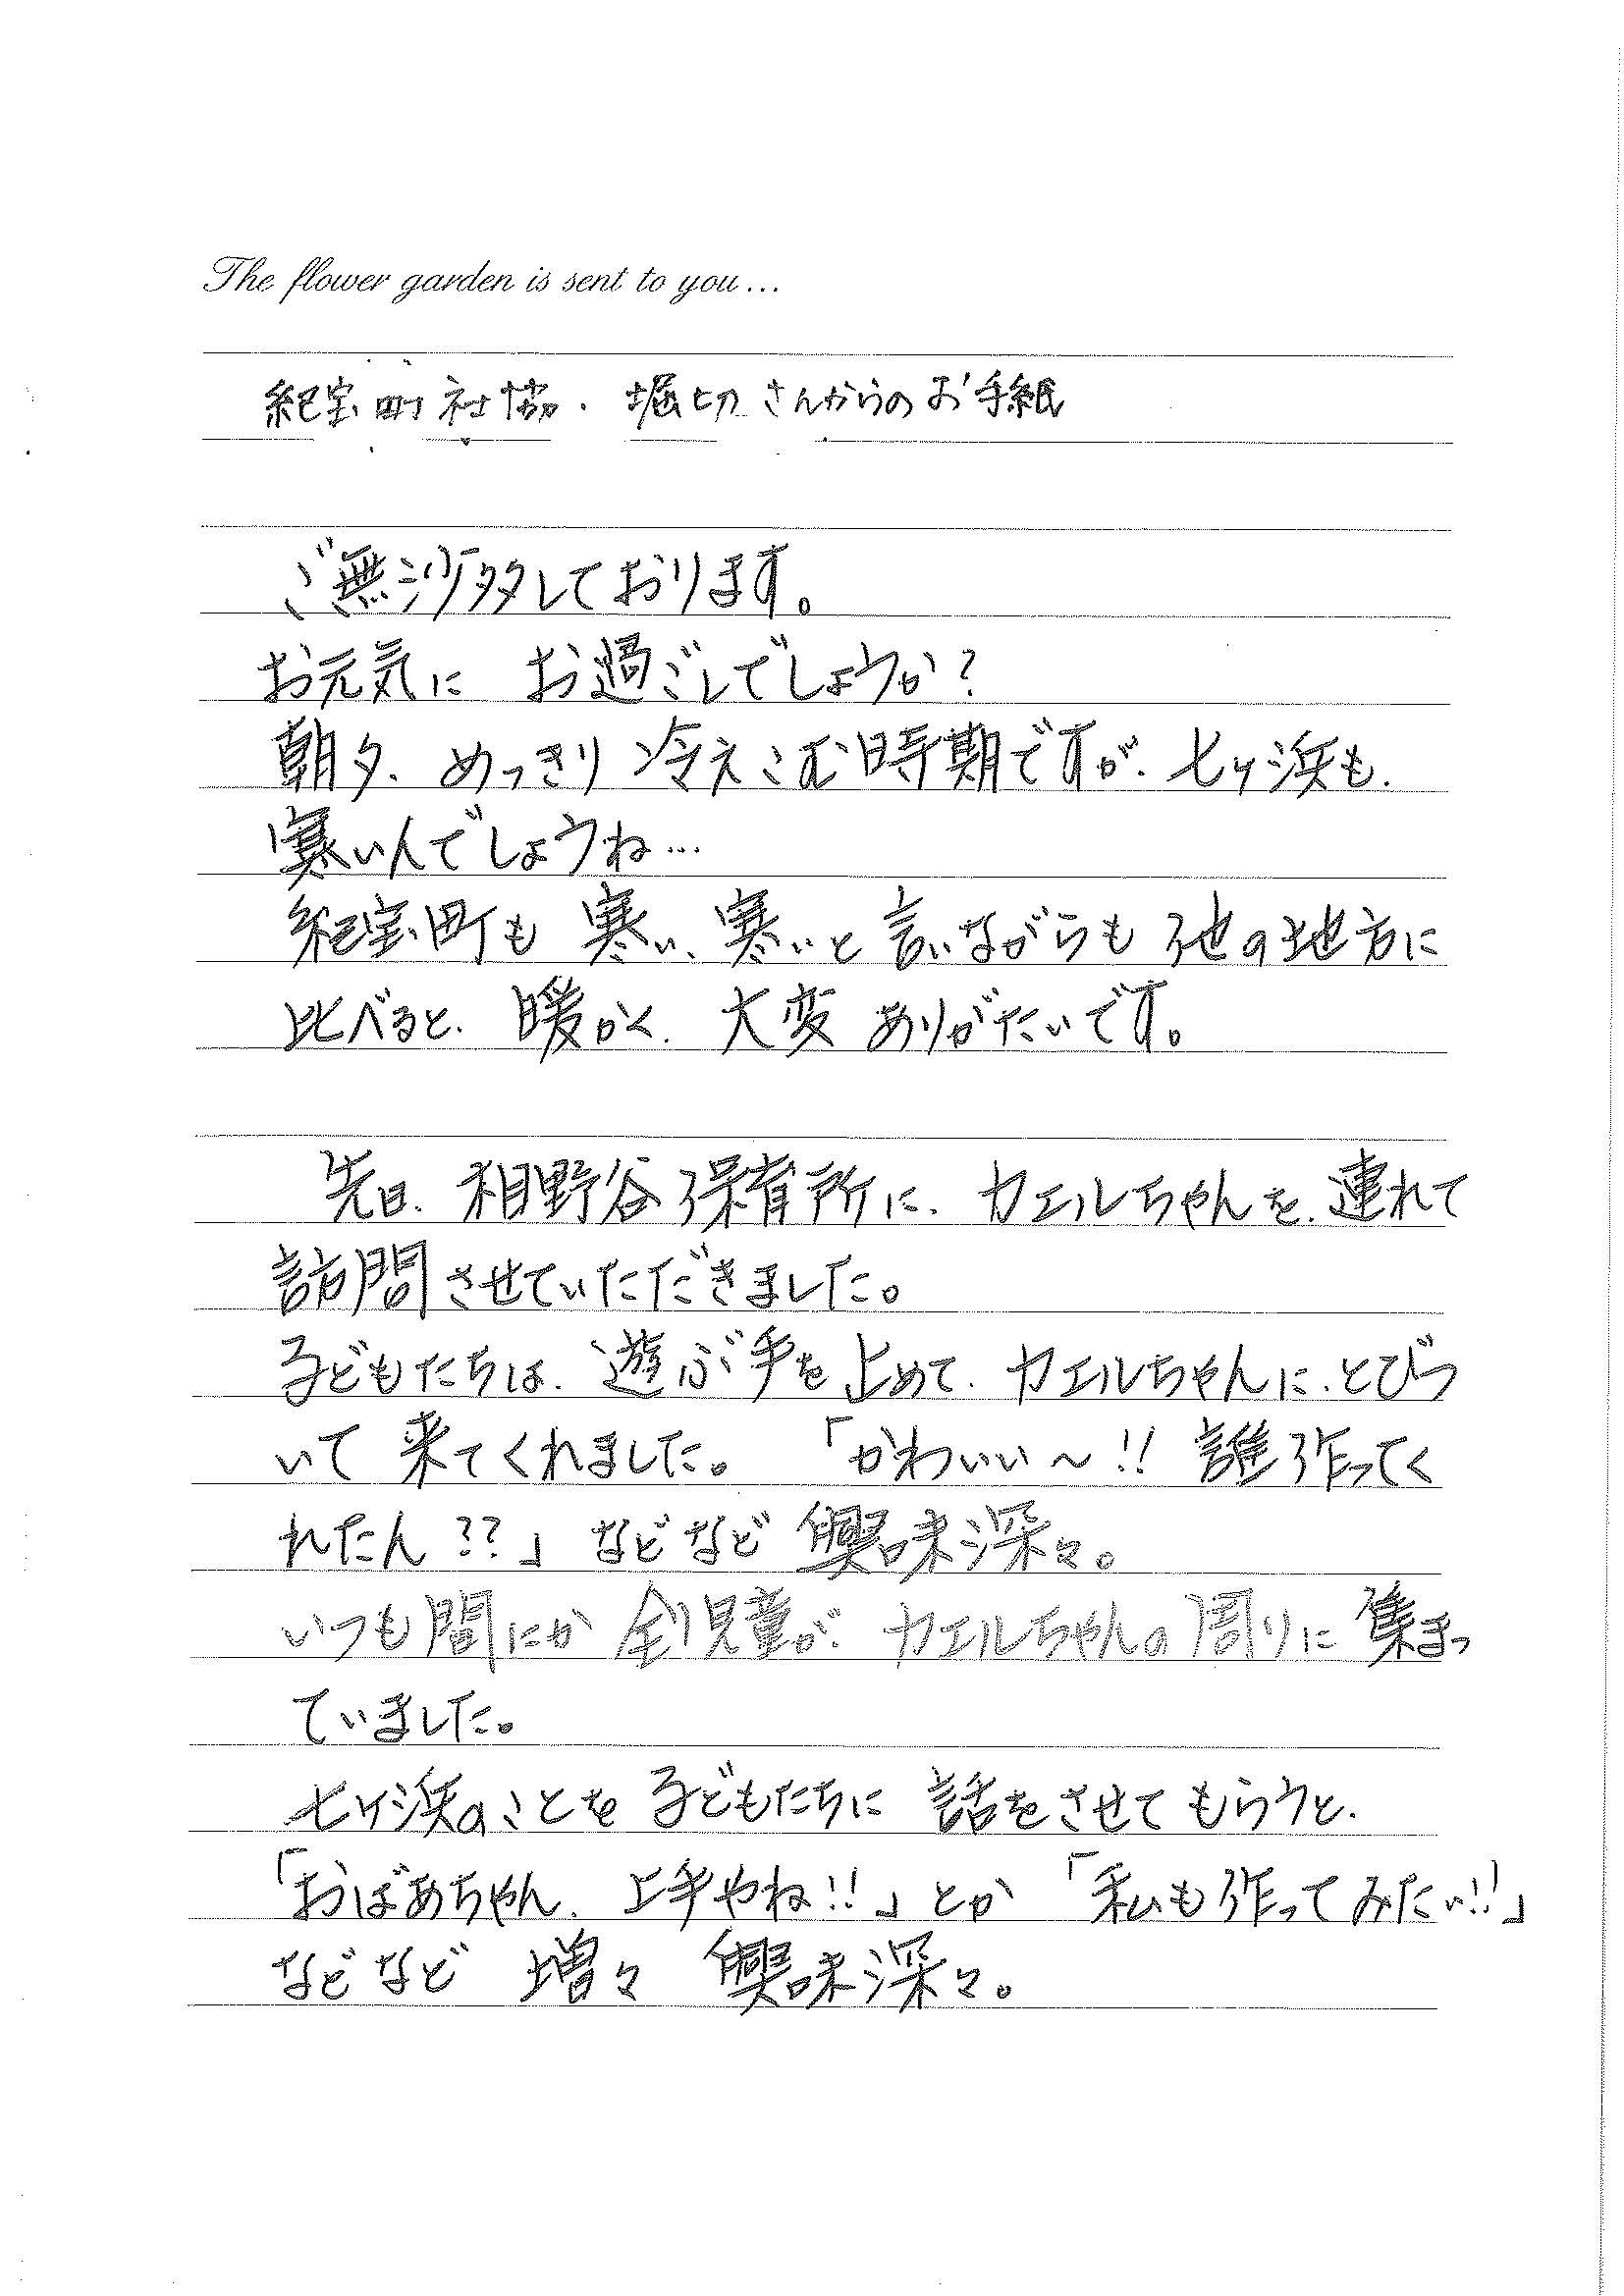 The flower garden is sent to you...
紀宝町社協、堀切さんからのお手紙
ご無沙汰しております。
お元気に お過ごしでしょうか?
朝夕、めっきり冷えこむ時期ですが、七ヶ浜も、
寒いんでしょうね…
紀宝町も 寒い、寒いと言いながらも 他の地方に
比べると、暖かく、大変 ありがたいです。
先日、相野谷保育所に、カエルちゃんを、連れて
訪問させていただきました。
子どもたちは、遊ぶ手を止めて、カエルちゃんに、とびつ
いて 来てくれました。 「かわいい〜!! 誰作ってく
れたん??」などなど 興味深々。
いつも間にか 全児童が、カエルちゃんの周りに集まっ
ていました。
七ヶ浜のことを子どもたちに 話をさせてもらうと、
「おばあちゃん、上手やね!!」とか「私も作ってみたい!!」
などなど 増々 興味深々。